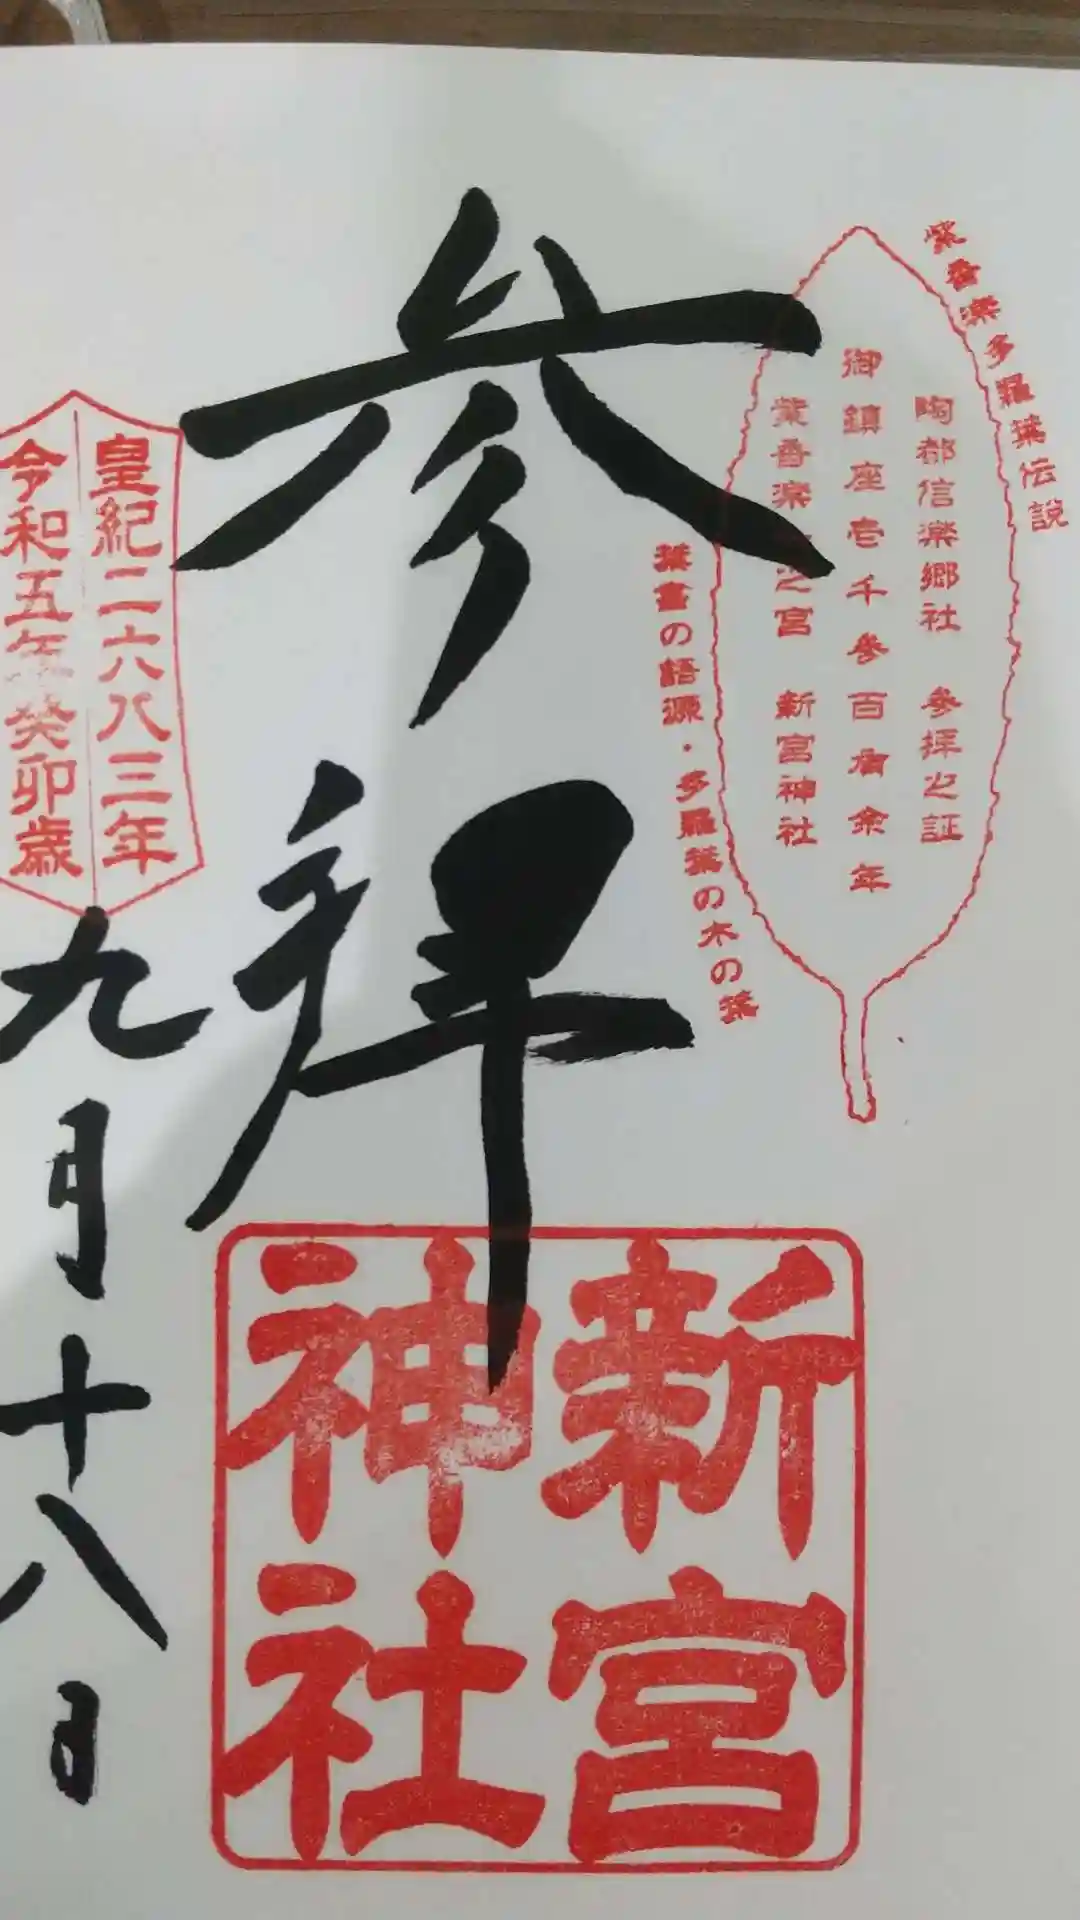 紫香楽多羅葉伝説
陶都信楽郷社 参拝之証
御鎮座壱千参百有余年
紫香楽 之宮 新宮神社
葉書の語源・多羅葉の木の葉
参拝
新宮
神社
皇紀二六八三年
令和五年癸卯歳
九月十八日